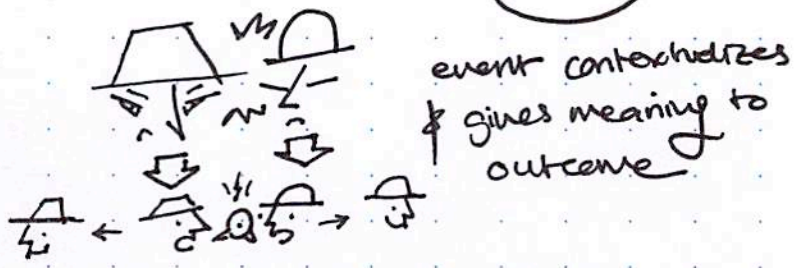 event contextualizes
& gives meaning to
outcome